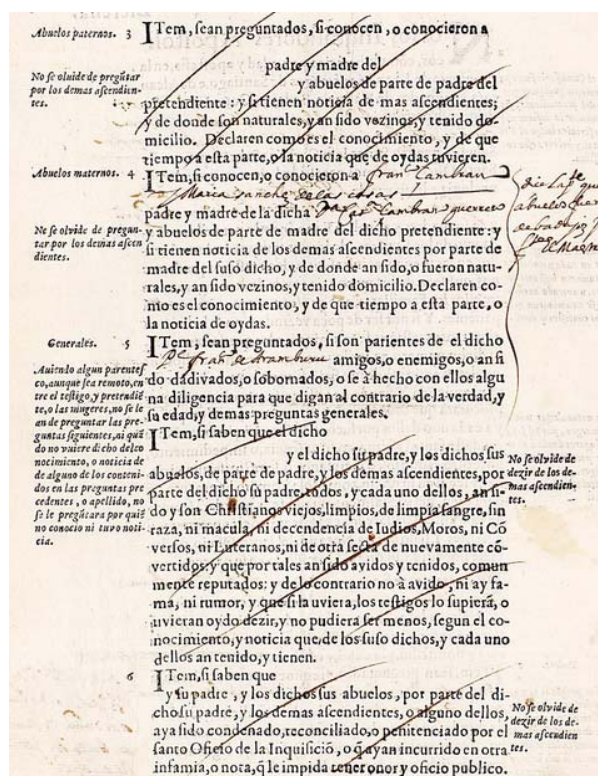 Abuelos paternos. 3
ITem, sean preguntados, si conocen, o conocieron a
padre y madre del
No se oluide de pregũtar
por los demas ascendien-
tes.
y abuelos de parte de padre del
pretendiente: y si tienen noticia de mas ascendientes;
y de donde son naturales, y an sido vezinos, y tenido do-
micilio. Declaren como es el conocimiento, y de que
tiempo a esta parte, o la noticia que de oydas tuvieren.
Abuelos maternos. 4
ITem, si conocen, o conocieron a
Maria sanchez de las
padre y madre de la dicha
Ne se olvide de pregun-
tar por los demas ascen
dientes.
y abuelos de parte de madre del dicho pretendiente: y
si tienen noticia de los demas ascendientes por parte de
madre del suso dicho, y de donde an sido, o fueron natu-
rales, y an sido vezinos, y tenido domicilio. Declaren co-
mo es el conocimiento, y de que tiempo a esta parte, o
la noticia de oydas.
Generales. 5
ITem, sean preguntados, si son parientes de el dicho
de Aramburu amigos, o enemigos, o an si
do dadivados, o sobornados, o se à hecho con ellos algu
na diligencia para que digan al contrario de la verdad, y
su edad, y demas preguntas generales.
Auiendo algun parentes
co, aunque sea remoto, en
tre el testigo, y pretendiẽ
te, o las mugeres, no se le
an de preguntar las pre-
guntas siguientes, ni quã
do no vuiere dicho del co
nocimiento, o noticia de
de alguno de los conteni-
dos en las preguntas pre
cedentes, o apellido, no
se le pregũtara por quiẽ
no conocio ni tuvo noti-
cia.
ITem, si saben que el dicho
y el dicho su padre, y los dichos sus
abuelos, de parte de padre, y los demas ascendientes, por
parte del dicho su padre, todos, y cada uno dellos, an si-
do y son Christianos viejos, limpios, de limpia sangre, sin
raza, ni macula, ni decendencia de Iudios, Moros, ni Cõ
versos, ni Luteranos, ni de otra secta de nuevamente cõ-
vertidos: y que por tales an sido avidos y tenidos, comun
mente reputados: y de lo contrario no à avido, ni ay fa-
ma, ni rumor, y que si la uviera, los testigos lo supierã, o
uvieran oydo dezir, y no pudiera ser menos, segun el co-
nocimiento, y noticia que, de los suso dichos, y cada uno
dellos an tenido, y tienen.
No se olvide de
dezir de los de-
mas ascendien-
tes.
6
ITem, si saben que
y su padre, y los dichos sus abuelos, por parte del di-
cho su padre, y los demas ascendientes, o alguno dellos,
aya sido condenado, reconciliado, o penitenciado por el
santo Oficio de la Inquisiciõ, o q̃ ayan incurrido en otra
infamia, o nota, q̃ le impida tener onor y oficio publico.
No se olvide de
dezir de los de-
mas ascendien
tes.